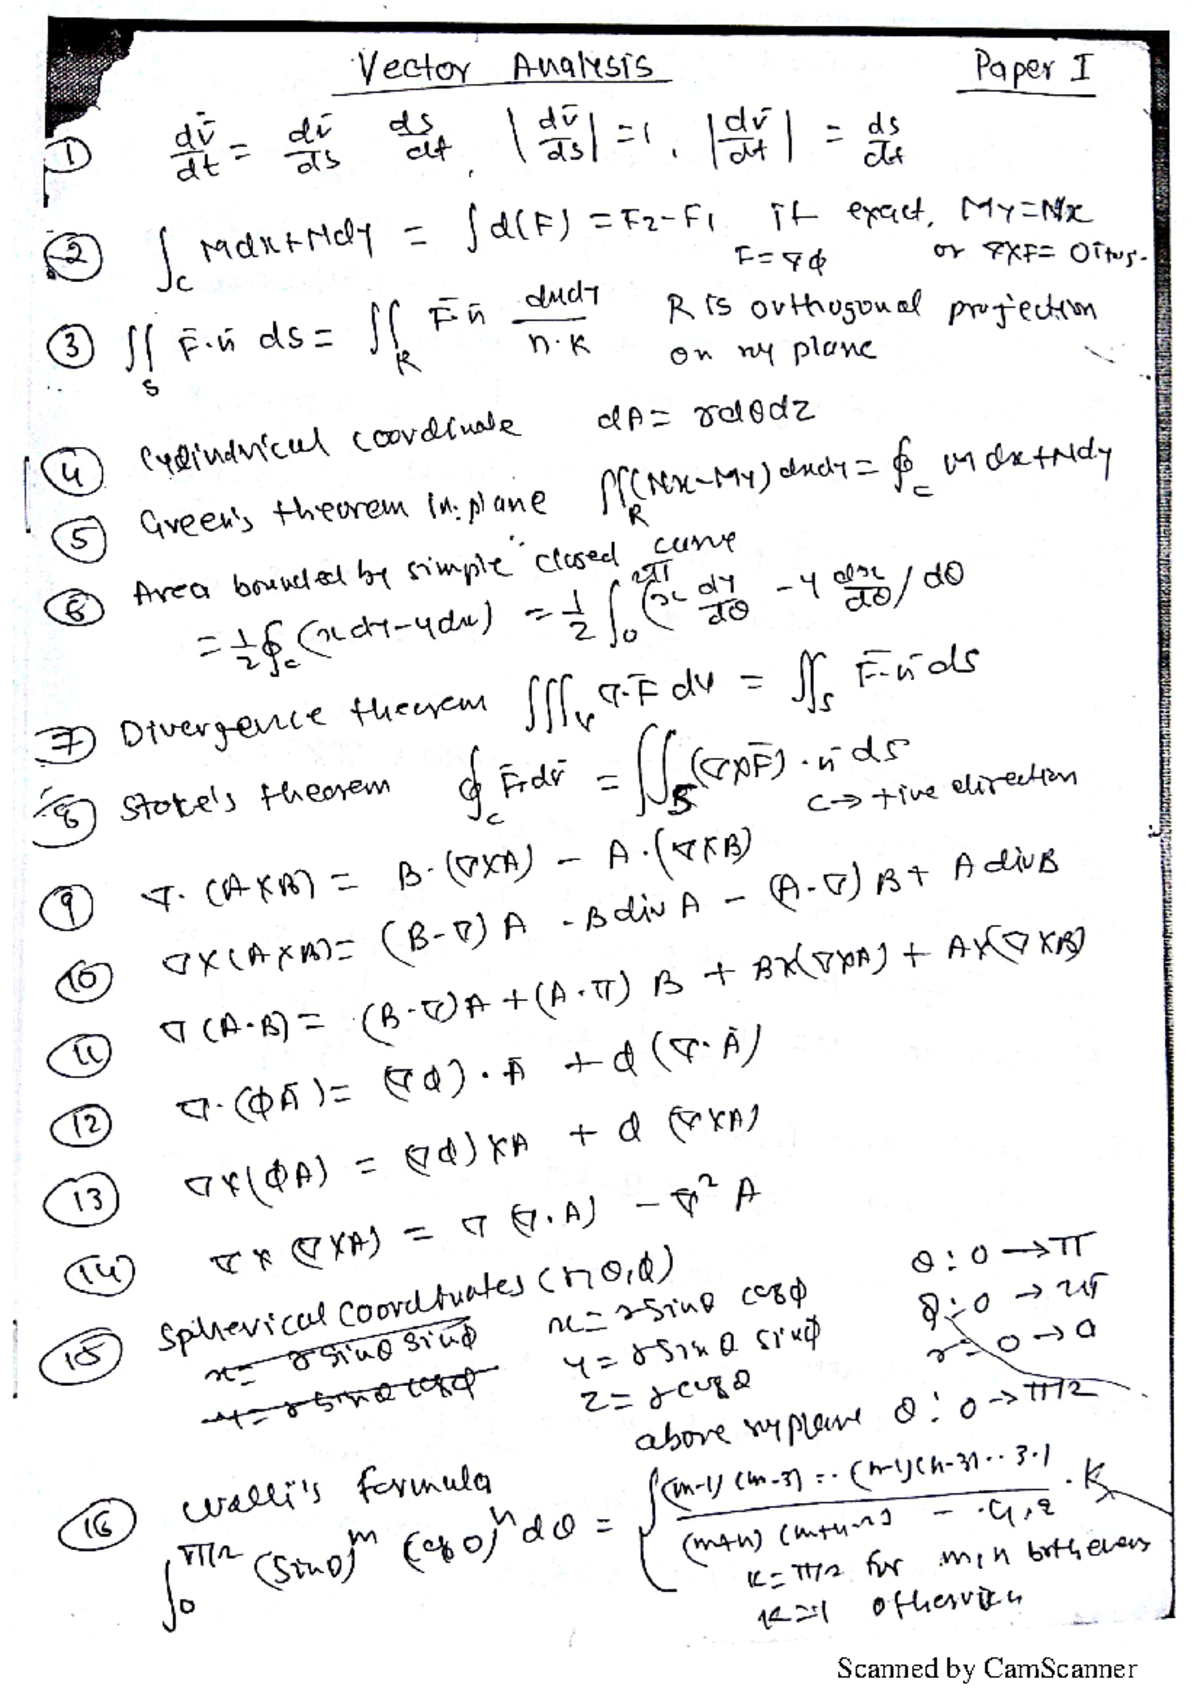 Vector Analysis Paper I
① dr̄/dt = dr̄/ds ds/dt, |dr̄/ds| = 1, |dr̄/dt| = ds/dt
② ∫_C Mdx+Ndy = ∫d(F) = F₂-F₁ if exact, My=Nx
F=∇ϕ or ∇×F=0
③ ∬_S F̄·n̄ ds = ∬_R F̄·n̄ dxdy/n·k R is orthogonal projection
on xy plane
④ Cylindrical coordinate dA = rdθdz
⑤ Green's theorem in plane ∬_R (Nx-My) dxdy = ∮_C Mdx+Ndy
⑥ Area bounded by simple closed curve
= 1/2 ∮_C (xdy-ydx) = 1/2 ∫_0^2π (x dy/dθ - y dx/dθ) dθ
⑦ Divergence theorem ∭_V ∇·F̄ dv = ∬_S F̄·n̄ ds
⑧ Stoke's theorem ∮_C F̄·dr̄ = ∬_S (∇×F̄)·n̄ ds
C→ +ive direction
⑨ ∇·(A×B) = B·(∇×A) - A·(∇×B)
⑩ ∇×(A×B) = (B·∇)A - B div A - (A·∇)B + A div B
⑪ ∇(A·B) = (B·∇)A + (A·∇)B + B×(∇×A) + A×(∇×B)
⑫ ∇·(ϕĀ) = (∇ϕ)·Ā + ϕ(∇·Ā)
⑬ ∇×(ϕA) = (∇ϕ)×A + ϕ(∇×A)
⑭ ∇×(∇×A) = ∇(∇·A) - ∇²A
⑮ Spherical coordinates (r,θ,ϕ) θ: 0→π
x = r sinθ sinϕ x = r sinθ cosϕ ϕ: 0→2π
y = r sinθ cosϕ y = r sinθ sinϕ r = 0→a
z = r cosθ
above xy plane θ: 0→π/2
⑯ Walli's formula
∫_0^π/2 (sinθ)^m (cosθ)^n dθ = { (m-1)(m-3)...(n-1)(n-3)...3.1 / (m+n)(m+n-2) - ..4.2 · K
K=π/2 for m,n both evens
K=1 otherwise
Scanned by CamScanner